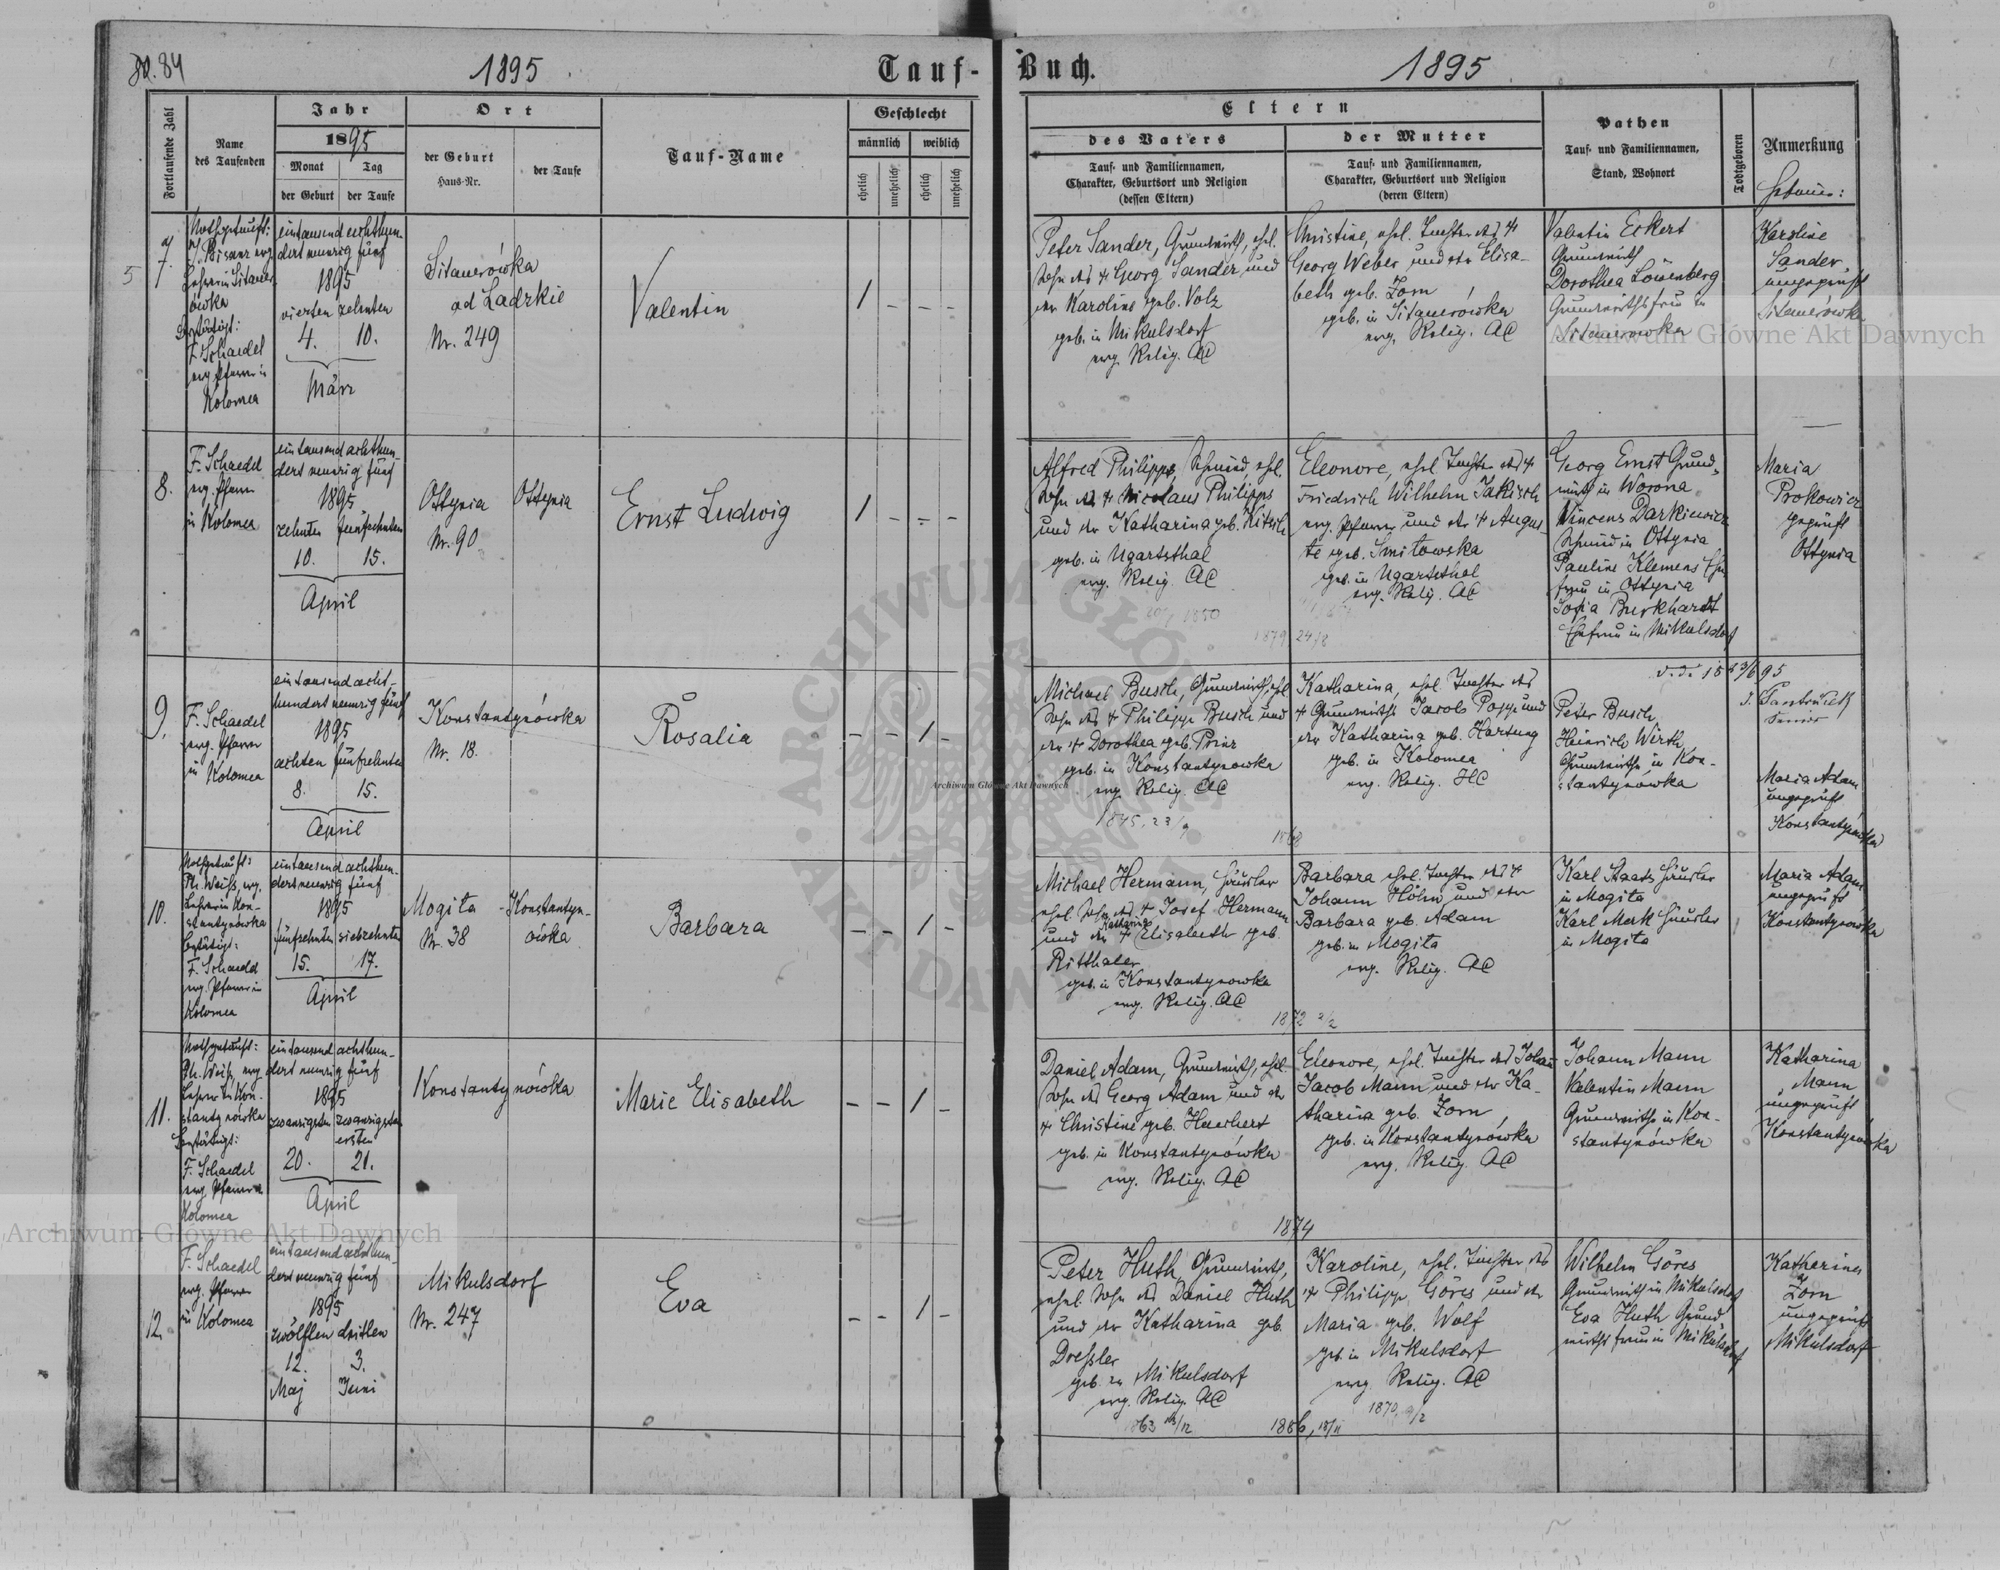 84
1895
Tauf-Buch.
1895
Fortlaufende Zahl
Name
des Taufenden
Jahr
1895
Monat
Tag
der Geburt
der Taufe
Ort
der Geburt
Haus-Nr.
der Taufe
Tauf-Name
Geschlecht
männlich
weiblich
ehelich
unehelich
ehelich
unehelich
Eltern
des Vaters
Tauf- und Familiennamen,
Charakter, Geburtsort und Religion
(dessen Eltern)
der Mutter
Tauf- und Familiennamen,
Charakter, Geburtsort und Religion
(deren Eltern)
Pathen
Tauf- und Familiennamen,
Stand, Wohnort
Todtgeboren
Anmerkung
5
7.
Nothgetauft:
Lehrer in Sitauer-
ówka
Bestätigt:
F. Schaedel
evg. Pfarrer in
Kolomea
eintausend achthun-
dert neunzig fünf
1895
vierten zehnten
4. 10.
März
Sitauerówka
ad Ladzkie
Nr. 249
Valentin
1 – – –
Peter Sander, Grundwirth, ehel.
Sohn des + Georg Sander und
der Karoline geb. Volz
geb. in Mikulsdorf
evg. Relig. AC
Christine, ehel. Tochter des +
Georg Weber und der Elisa-
beth geb. Zorn
geb. in Sitauerówka
evg. Relig. AC
Valentin Eckert
Grundwirth
Dorothea Löwenberg
Grundwirthsfrau in
Sitauerowka
Karoline
Sander
ungeprüft
Sitauerówka
8.
F. Schaedel
evg. Pfarrer
in Kolomea
eintausend achthun-
dert neunzig fünf
1895
zehnten fünfzehnten
10. 15.
April
Ottynia
Nr. 90
Ottynia
Ernst Ludwig
1 – – –
Alfred Philipps, Schmied, ehel.
Sohn des + Nicolaus Philipps
und der Katharina geb. Kitsch
geb. in Ugartsthal
evg. Relig. AC
1850
Eleonore, ehel. Tochter des +
Friedrich Wilhelm Jakisch
evg. Pfarrer und der + Augus-
te geb. Smitowska
geb. in Ugartsthal
evg. Relig. AC
1879 24/8
Georg Ernst Grund-
wirth in Worona
Vincens Darkiewicz
Schmied in Ottynia
Pauline Klemens Ehe-
frau in Ottynia
Sofia Burkhardt
Ehefrau in Mikulsdorf
Maria
Prokowicz
geprüft
Ottynia
9.
F. Schaedel
evg. Pfarrer
in Kolomea
eintausend acht-
hundert neunzig fünf
1895
achten fünfzehnten
8. 15.
April
Konstantynówka
Nr. 18.
Rosalia
– – 1 –
Michael Busch, Grundwirth, ehel.
Sohn des + Philipp Busch und
der + Dorothea geb. Prinz
geb. in Konstantynowka
evg. Relig. AC
1845, 23/9
Katharina, ehel. Tochter des
+ Grundwirths Jacob Popp und
der Katharina geb. Hartung
geb. in Kolomea
evg. Relig. HC
1868
Peter Busch
Heinrich Wirth
Grundwirthe in Kon-
stantynówka
Senior
Maria Adam
ungeprüft
Konstantynówka
10.
Nothgetauft:
Ph. Weiss, evg.
Lehrer in Kon-
stantynówka
Bestätigt:
F. Schaedel
evg. Pfarrer in
Kolomea
eintausend achthun-
dert neunzig fünf
1895
fünfzehnten siebzehnten
15. 17.
April
Mogiła
Nr. 38
Konstantyn-
ówka
Barbara
– – 1 –
Michael Hermann, Häusler
ehel. Sohn des + Josef Hermann
Katharina
und der + Elisabeth geb.
Ritthaler
geb. in Konstantynowka
evg. Relig. AC
Barbara ehel. Tochter des +
Johann Höhn und der
Barbara geb. Adam
geb. in Mogiła
evg. Relig. AC
1872 2/2
Karl Staats Häusler
in Mogiła
Karl Merk Häusler
in Mogiła
Maria Adam
ungeprüft
Konstantynówka
11.
Nothgetauft:
Ph. Weiss, evg.
Lehrer in Kon-
stantynówka
Bestätigt:
F. Schaedel
evg. Pfarrer in
Kolomea
eintausend achthun-
dert neunzig fünf
1895
zwanzigsten zwanzigsten
ersten
20. 21.
April
Konstantynówka
Marie Elisabeth
– – 1 –
Daniel Adam, Grundwirth, ehel.
Sohn des Georg Adam und der
+ Christine geb. Haerhert
geb. in Konstantynówka
evg. Relig. AC
Eleonore, ehel. Tochter des Johann
Jacob Mann und der Ka-
tharina geb. Zorn
geb. in Konstantynówka
evg. Relig. AC
1874
Johann Mann
Valentin Mann
Grundwirthe in Kon-
stantynówka
Katharina
Mann
ungeprüft
Konstantynówka
12.
F. Schaedel
evg. Pfarrer
in Kolomea
eintausend achthun-
dert neunzig fünf
1895
zwölften dritten
12. 3.
Maj Juni
Mikulsdorf
Nr. 247
Eva
– – 1 –
Peter Huth, Grundwirth,
ehel. Sohn des Daniel Huth
und der Katharina geb.
Dressler
geb. zu Mikulsdorf
evg. Relig. AC
Karoline, ehel. Tochter des
+ Philipp Göres und der
Maria geb. Wolf
geb. in Mikulsdorf
evg. Relig. AC
1886, 18/11
Wilhelm Göres
Grundwirth in Mikulsdorf
Eva Huth Grund-
wirthsfrau in Mikulsdorf
Katharina
Zorn
ungeprüft
Mikulsdorf
Archiwum Główne Akt Dawnych
Archiwum Główne Akt Dawnych
Archiwum Główne Akt Dawnych
ARCHIWUM GŁÓWNE AKT DAWNYCH